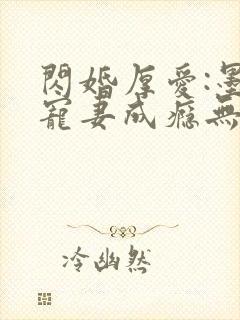 閃婚厚愛:墨
寵妻成癮無
冷幽然